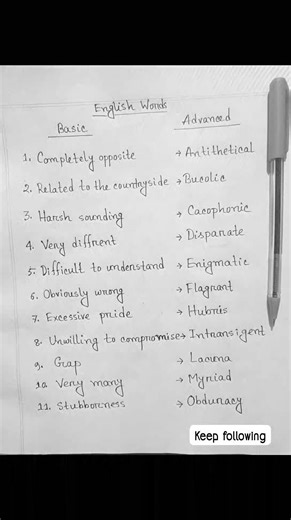 English Words
Basic Advanced
1. Completely opposite → Antithetical
2. Related to the countryside → Bucolic
3. Harsh sounding → Cacophonic
4. Very diffrent → Disparate
5. Difficult to understand → Enigmatic
6. Obviously wrong → Flagrant
7. Excessive pride → Hubris
8. Unwilling to compromise → Intransigent
9. Gap → Lacuna
10. Very many → Myriad
11. Stubborness → Obduracy
Keep following